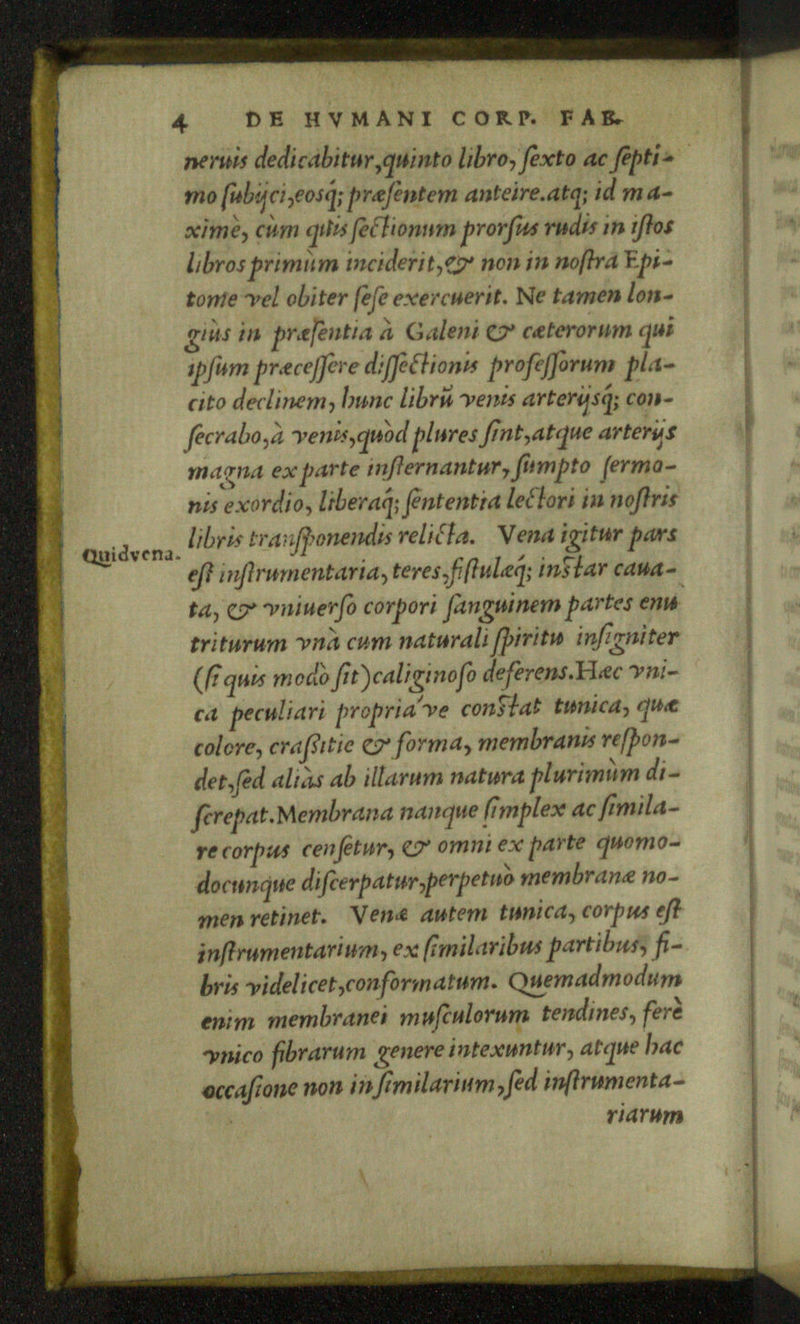 4 DE HVMANI CORP. FAB.
neruis dedicabitur,quinto libro, ſexto ac ſepti-
mo ſubijci,eosq; præſentem anteire.atq; id ma-
ximè, cùm quis ſectionum prorſus rudis in iſtos
libros primùm inciderit,& non in noſtra Epi-
tome vel obiter ſeſe exercuerit. Ne tamen lon-
giùs in præſentia à Galeni & cæterorum qui
ipſum præceſſere diſſectionis profeſſorum pla-
cito declinem, hunc librũ venis arterijsq; con-
ſecrabo,à venis,quòd plures ſint,atque arterijs
magna ex parte inſternantur, ſumpto ſermo-
nis exordio, liberaq́; ſententia lectori in noſtris
libris tranſponendis relicta. Vena igitur pars
Quid vena.
eſt inſtrumentaria, teres,fiſtulæq́; inſtar caua-
ta, & vniuerſo corpori ſanguinem partes enu
triturum vnà cum naturali ſpiritu inſigniter
(ſi quis modò ſit)caliginoſo deferens.Hæc vni-
ca peculiari propria've conſtat tunica, quæ
colore, craſsitie & forma, membranis reſpon-
det,ſed aliàs ab illarum natura plurimùm di-
ſcrepat.Membrana nanque ſimplex ac ſimila-
re corpus cenſetur, & omni ex parte quomo-
docunque diſcerpatur,perpetuò membranæ no-
men retinet. Venæ autem tunica, corpus eſt
inſtrumentarium, ex ſimilaribus partibus, fi-
bris videlicet,conformatum. Quemadmodum
enim membranei muſculorum tendines, ferè
vnico fibrarum genere intexuntur, atque hac
occaſione non in ſimilarium,ſed inſtrumenta-
riarum